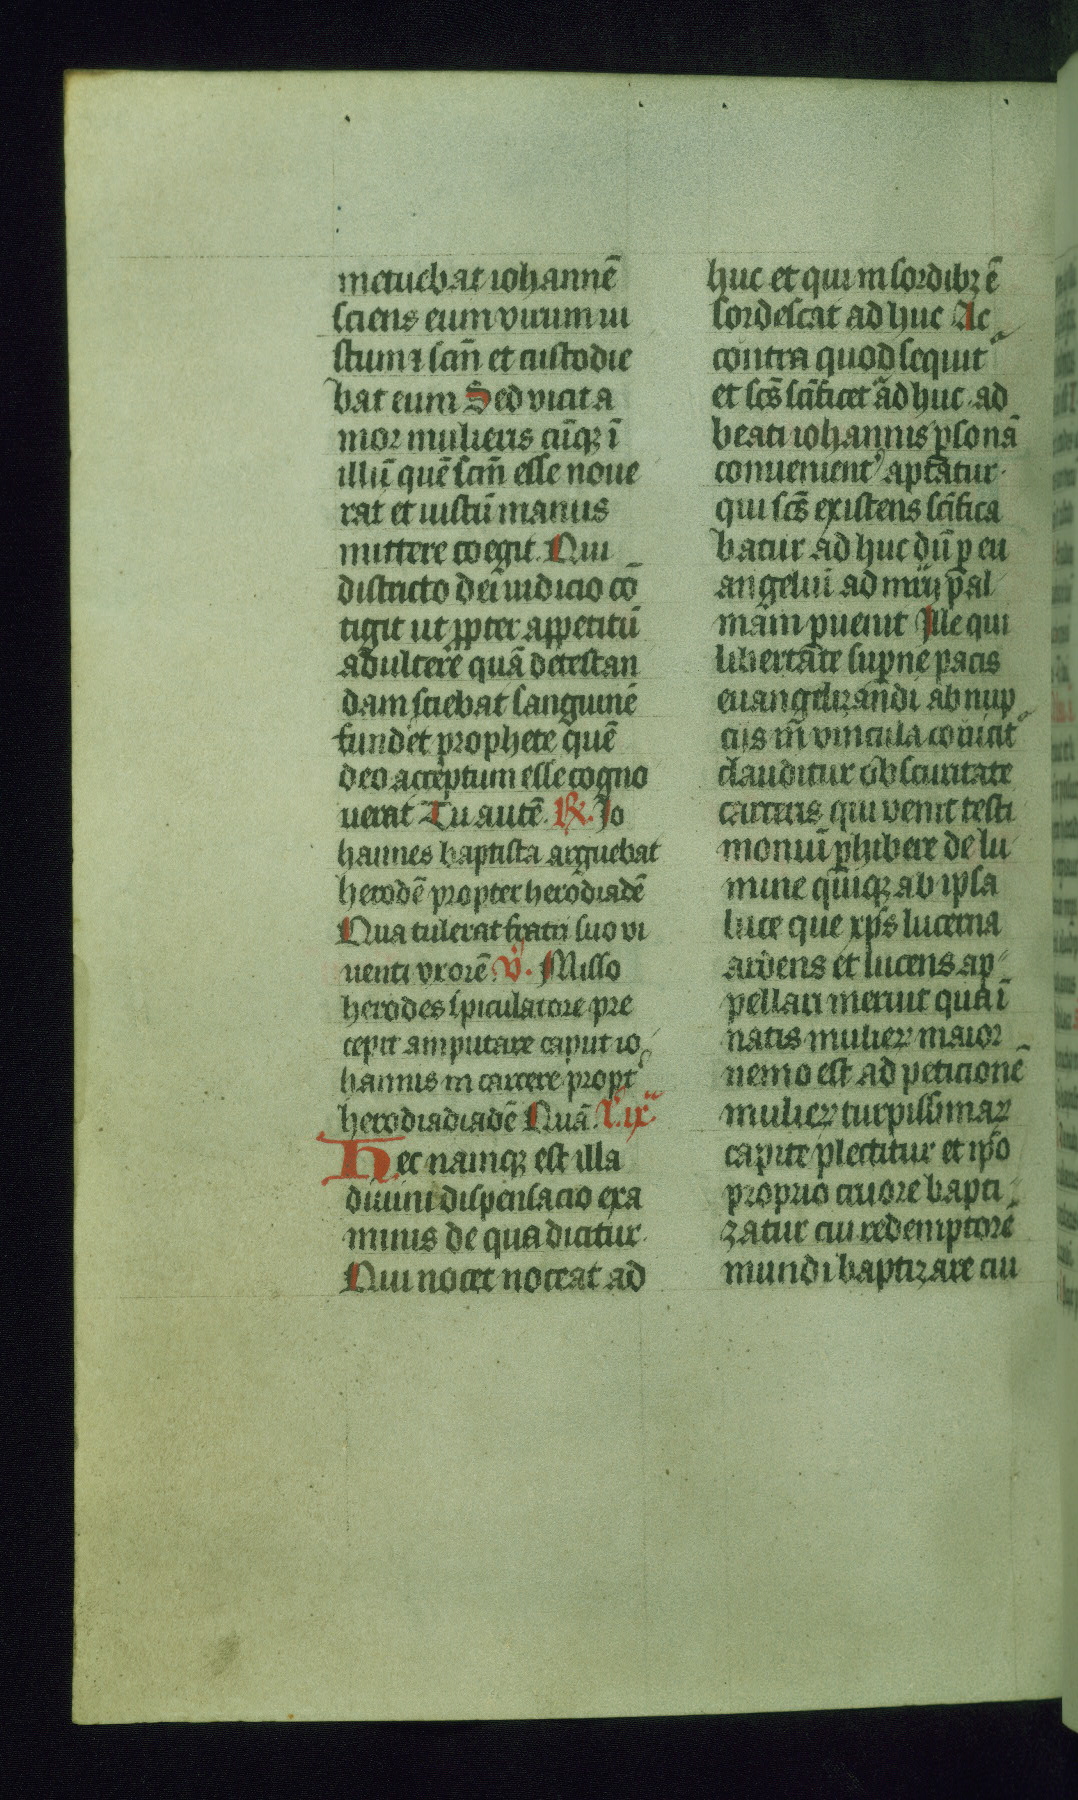 metuebat iohannē
sciens eum virum iu
stum ⁊ scm̄ et custodie
bat eum Sed vicit a
mor mulieris cūqꝫ ī
illū quē scm̄ esse noue
rat et iustū manus
mittere coegit. Qui
districto dei iudicio cō
tigit ut ꝓpter appetitū
adultere quā detestan
dam sciebat sanguinē
fundet prophete quē
deo acceptum esse cogno
uerat Tu autē. ℟. Jo
hannes baptista arguebat
herodē propter herodiadē
Qua tulerat fratri suo vi
uenti vxorē. ℣. Misso
herodes spiculatore pre
cepit amputare caput io
hannis in carcere propt
herodiadiadē Quā. l. ix
Hec namqꝫ est illa
diuini dispensacio exa
minis de qua dicitur
Qui nocet noceat ad
huc et qui in sordibꝫ ē
sordescat ad huc Ac
contra quod sequit
et scs̄ scīficet ad huc. ad
beati iohannis ꝑsonā
conuenient aptatur
qui scs̄ existens scīfica
batur ad huc dū ꝑ eu
angelui ad mr̄ij pal
mam ꝑuenit Ille qui
libertate suꝑne pacis
euangelizandi ab nup
ciis in vincula conicit
clauditur obscuritate
carceris qui venit testi
moniū ꝑhibere de lu
mine quiqꝫ ab ipsa
luce que xp̄s lucerna
ardens et lucens ap
pellari meruit qua ī
natis mulieꝝ maior
nemo est ad peticionē
mulieꝝ turpissimaꝝ
capite plectitur et ip̄o
proprio cruore bapti
zatur cui redemptorē
mundi baptizare cui